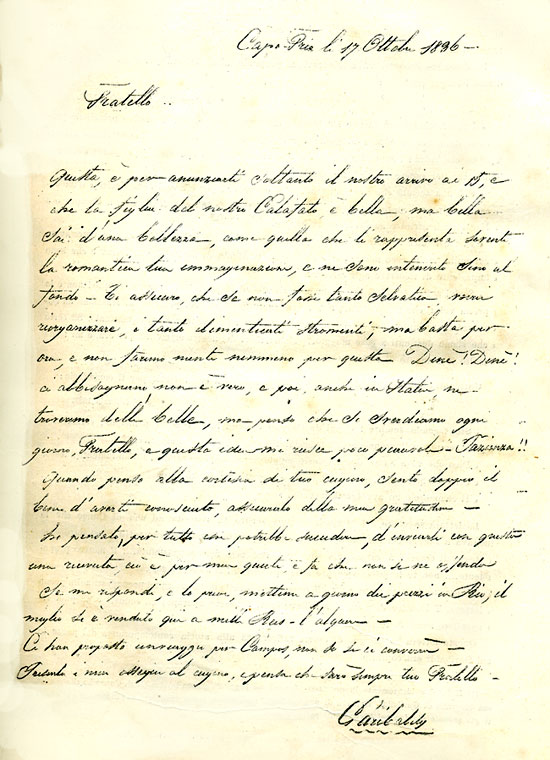 Capo-Frio li 17 Ottobre 1836 —
Fratello ..
Questa, è per annunziarti soltanto il nostro arrivo ai 15, e
che la figlia del nostro Calafato è bella, ma bella
Sai d'una bellezza, come quella che ti rappresenta sovente
la romantica tua immaginazione, e ne sono intenerito sino al
fondo — Ti assicuro, che se non fossi tanto selvatico, vorrei
riorganizzare, i tanto dimenticati stromenti, ma basta per
ora, e non faremo niente nemmeno per questa Denè! Denè!
ci abbisognano, non è vero, e poi, anche in Italia, ne
troveremo delle belle, ma penso che si svediamo ogni
giorno, Fratello, e questa idea mi riesce poco piacevole — Pazienza!!
Quando penso alla cortesia di tuo cugino, sento doppio il
bene d'averti conosciuto, assicuralo della mia gratitudine —
ho pensato, per tutto che potrebbe succedere, d'inviarti con questa
una ricevuta, ciò è per mia quiete, e fa che non se ne offenda
Se mi rispondi, e lo puoi, mettimi a giorno dei prezzi in Rio; il
meglio si è venduto qui a mille Reis — l'alquere —
Ci han proposto un viaggio per Campos, non so se ci converrà —
Presenta i miei ossequi al cugino, e pensa che sarò sempre tuo Fratello —
Garibaldi